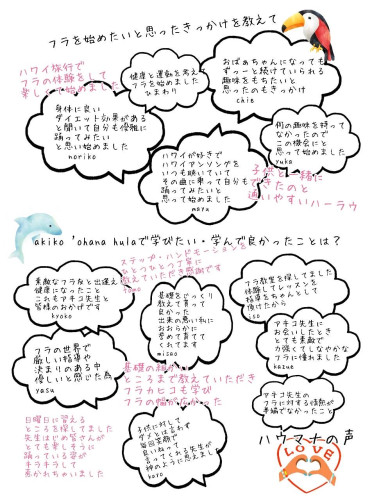 フラを始めたいと思ったきっかけを教えて
ハワイ旅行で
フラの体験をして
楽しくて始めました
健康と運動を考え
フラを始めました
ひまわり
おばあちゃんになっても
ずぅーと続けていられる
趣味をもちたいと
思ったのもきっかけ
chie
身体に良い
ダイエット効果がある
と聞いて自分も優雅に
踊ってみたい
と思い始めました
noriko
何の趣味を持って
なかったので
この機会にと
思って始めました
yuka
ハワイが好きで
ハワイアンソングを
いつも聴いていて
その曲に乗って自分も
踊ってみたい
mayu
子供と一緒に
できたのと
通いやすいハーラウ
akiko 'ohana hulaで学びたい・学んで良かったことは？
ステップ・ハンドモーションを
ひとつひとつ丁寧に
教えていただき感謝です
素敵なフラ友と出逢え
健康になったこと
これもアキコ先生と
皆様のおかげです
kyoko
基礎をじっくり
教えて貰って
良かった
出来の悪い私に
おおらかに
誉めて育てて
くれてます
misao
フラ教室を探してました
体験してレッスンを
指導をちゃんとして
頂けたし
iso
フラの世界で
厳しい指導や
決まりのある中
優しいと感じた為
yasu
アキコ先生に
お会いしたとき
とても素敵で
力強くてしなやかな
フラに憧れました
kazue
基礎の細かい
ところまで教えていただき
フラカヒコも学び
フラの幅が広がった
アキコ先生の
フラに対する情熱が
半端でなかったこと
日曜日に習える
ところを探してました
先生はじめ皆さんが
とても楽しそうに
踊っている姿が
キラキラして
惹かれちゃいました
子供に対して
ダメとは言わず
毎回笑顔で
良いねって
言ってくれる先生が
神のように思えました
koro
ハウマナの声
LOVE